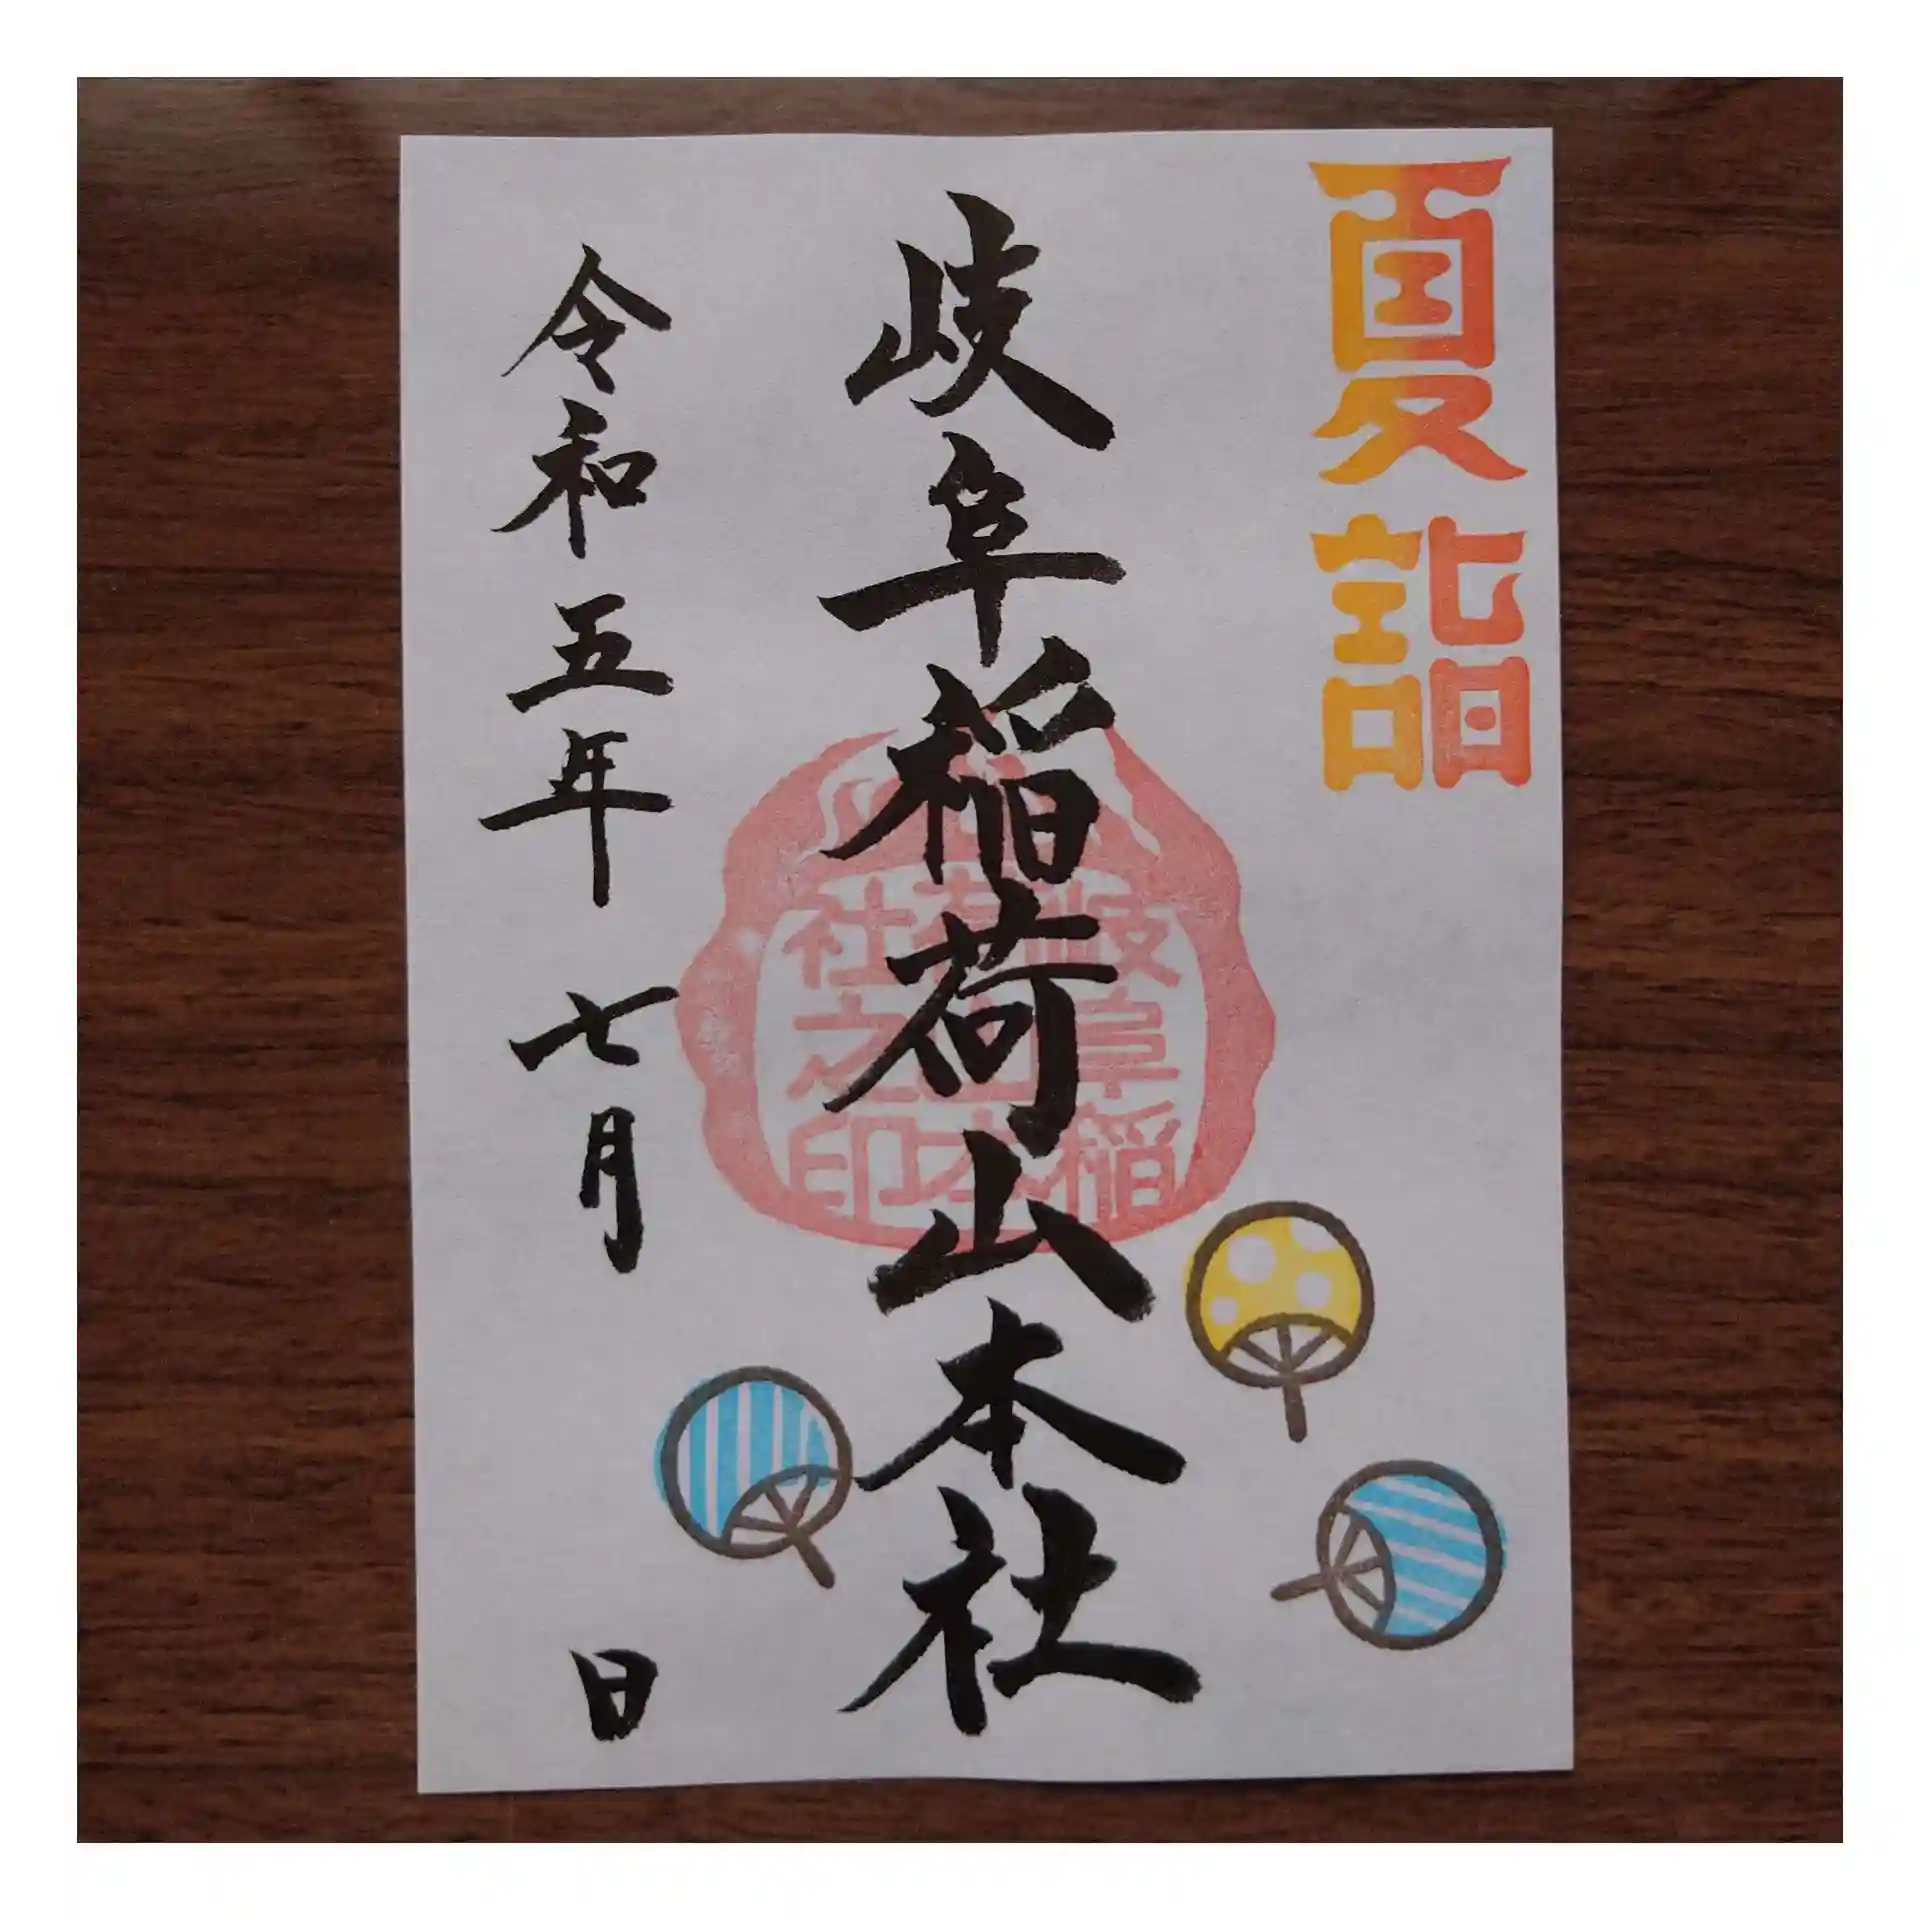 夏詣
岐阜稲荷山本社
岐阜稲
荷山本
社之印
令和五年七月 日